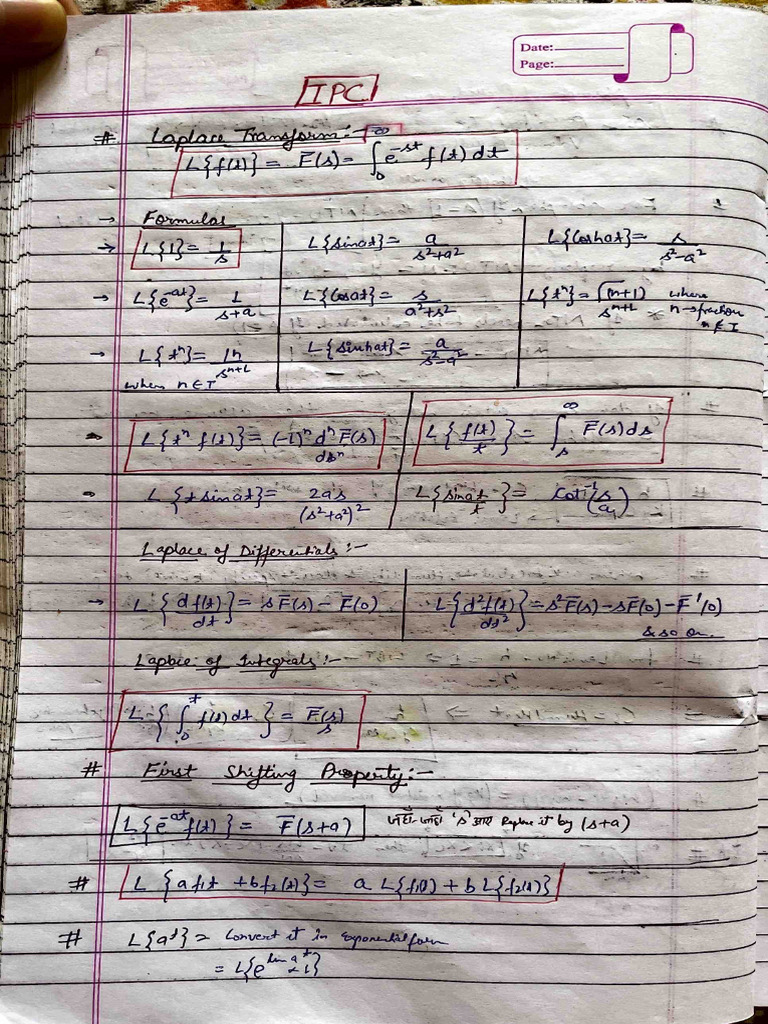 Date:
Page:
IPC
# Laplace Transform:-
L{f(t)} = F̅(s) = ∫₀^∞ e^-st f(t) dt
→ Formulas
→ L{1} = 1/s | L{sinat} = a/(s²+a²) | L{Coshat} = s/(s²-a²)
→ L{e^-at} = 1/(s+a) | L{Cosat} = s/(a²+s²) | L{t^n} = Γ(n+1)/s^(n+1) where n→fraction n∉I
→ L{t^n} = ⌊n/s^(n+1) | L{sinhat} = a/(s²-a²)
where n∈I
→ L{t^n f(t)} = (-1)^n d^n F̅(s)/ds^n | L{f(t)/t} = ∫_s^∞ F̅(s)ds
→ L{tsinat} = 2as/(s²+a²)² | L{sinat/t} = Cot⁻¹(s/a)
Laplace of Differentials:-
→ L{df(t)/dt} = sF̅(s) - F̅(0) | L{d²f(t)/dt²} = s²F̅(s) - sF̅(0) - F̅'(0)
& so on.
Laplace of Integrals:-
L{∫₀^t f(t) dt} = F̅(s)/s
# First Shifting Property:-
L{e^-at f(t)} = F̅(s+a) जहाँ-जहाँ 's' आए Replace it by (s+a)
# L{af₁t + bf₂(t)} = a L{f₁(t)} + b L{f₂(t)}
# L{a^t} = Convert it in exponential form